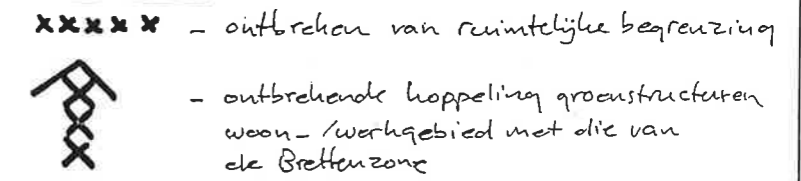 xxxxx - ontbreken van ruimtelijke begrenzing
- ontbrekende koppeling groenstructuren
woon-/werkgebied met die van
de Brettenzone